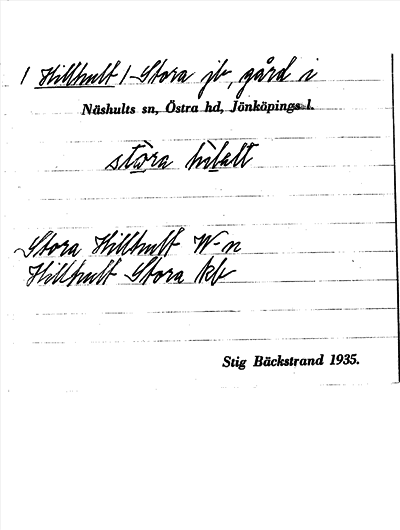 / Hillhult / Stora jb, gård i
Näshults sn, Östra hd, Jönköpings l.
stora hilalt
Stora Hillhult W-n
Hillhult Stora kb
Stig Bäckstrand 1935.